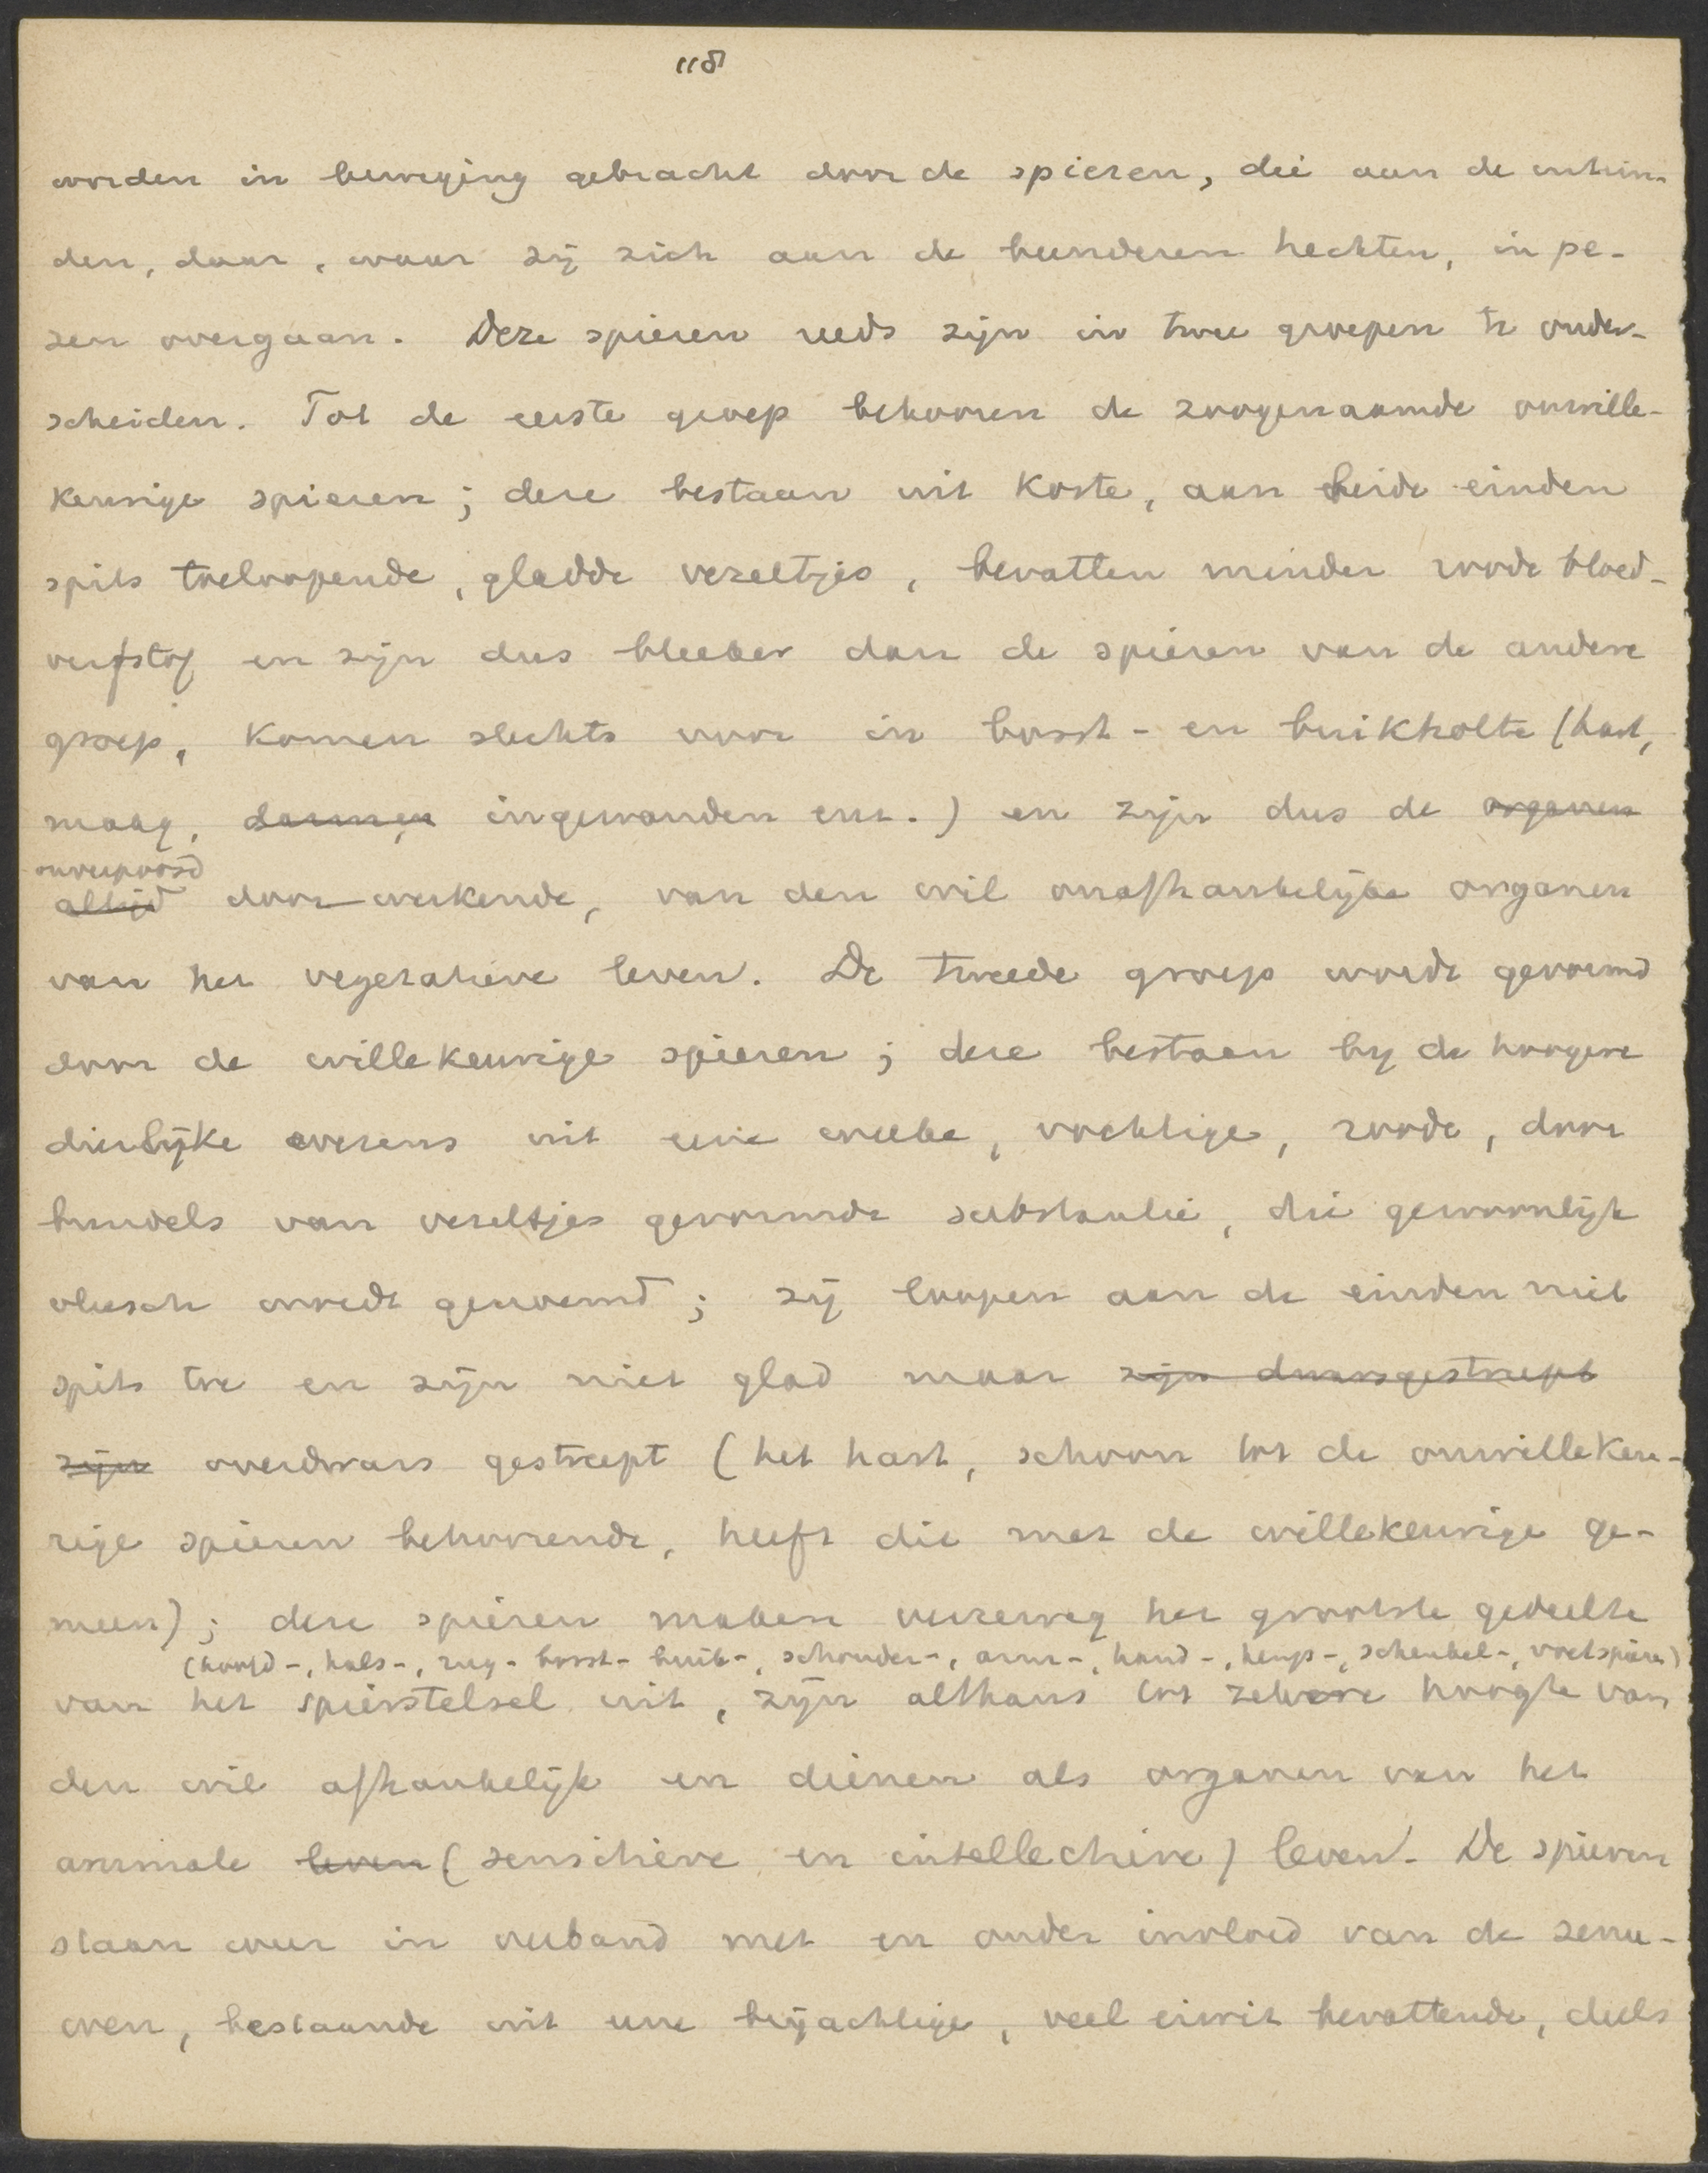 118
worden in beweging gebracht door de spieren, die aan de uitein-
den, daar, waar zij zich aan de beenderen hechten, in pe-
zen overgaan. Deze spieren reeds zijn in twee groepen te onder-
scheiden. Tot de eerste groep behooren de zoogenaamde onwille-
keurige spieren; deze bestaan uit korte, aan beide einden
spits toeloopende, gladde vezeltjes, bevatten minder roode bloed-
verfstof en zijn dus bleeker dan de spieren van de andere
groep, komen slechts voor in borst- en buikholte (hart,
maag, darmen ingewanden enz.) en zijn dus de organen
onverpoosd
altijd door werkende, van den wil onafhankelijke organen
van het vegetatieve leven. De tweede groep wordt gevormd
door de willekeurige spieren; deze bestaan bij de hoogere
dierlijke wezens uit eene weeke, vochtige, roode, door
bundels van vezeltjes gevormde substantie, die gewoonlijk
vleesch wordt genoemd; zij loopen aan de einden niet
spits toe en zijn niet glad maar zijn dwarsgestreept
zijn overdwars gestreept (het hart, schoon tot de onwillekeu-
rige spieren behoorende, heeft die met de willekeurige ge-
meen); deze spieren maken verreweg het grootste gedeelte
(hoofd-, hals-, rug- borst- buik-, schouder-, arm-, hand-, heup-, schenkel-, voetspieren)
van het spierstelsel uit, zijn althans tot zekere hoogte van
den wil afhankelijk en dienen als organen van het
animale leven (sensitieve en intellectieve) leven. De spieren
staan weer in verband met en onder invloed van de zenu-
wen, bestaande uit eene breiachtige, veel eiwit bevattende, deels